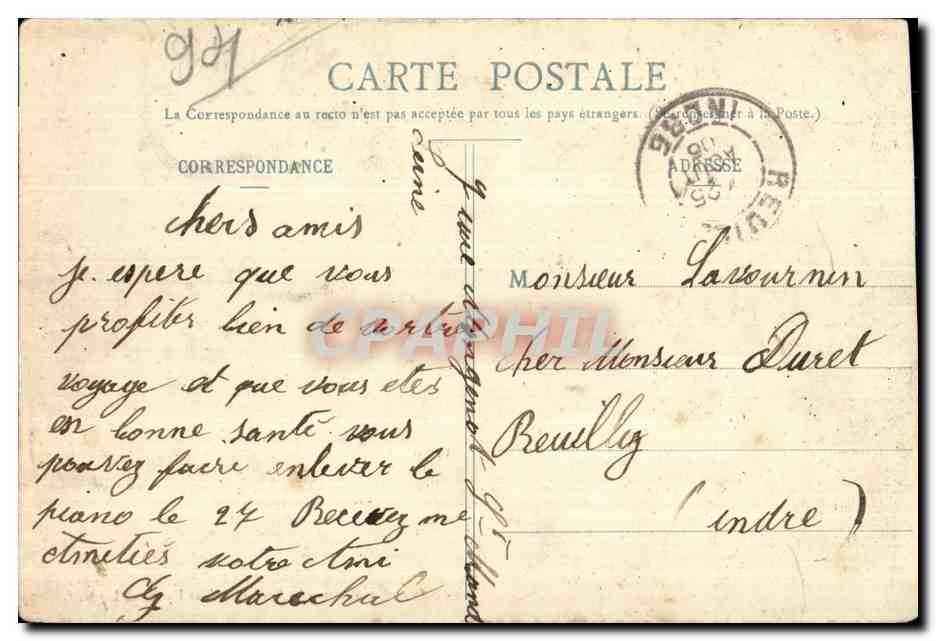 94
CARTE POSTALE
La Correspondance au recto n'est pas acceptée par tous les pays étrangers. (Se renseigner à la Poste.)
CORRESPONDANCE
ADRESSE
chers amis
je espere que vous
profiter bien de vortre
voyage et que vous etes
en bonne santé vous
pouvez faire enlever le
piano le 27 Recevez me
Amitiés votre Ami
Marechal
St Mand
Seine
Monsieur Lavournin
cher Monsieur Duret
Reuilly
(indre)
INDRE
25
AOUT
06
CPAPHIL